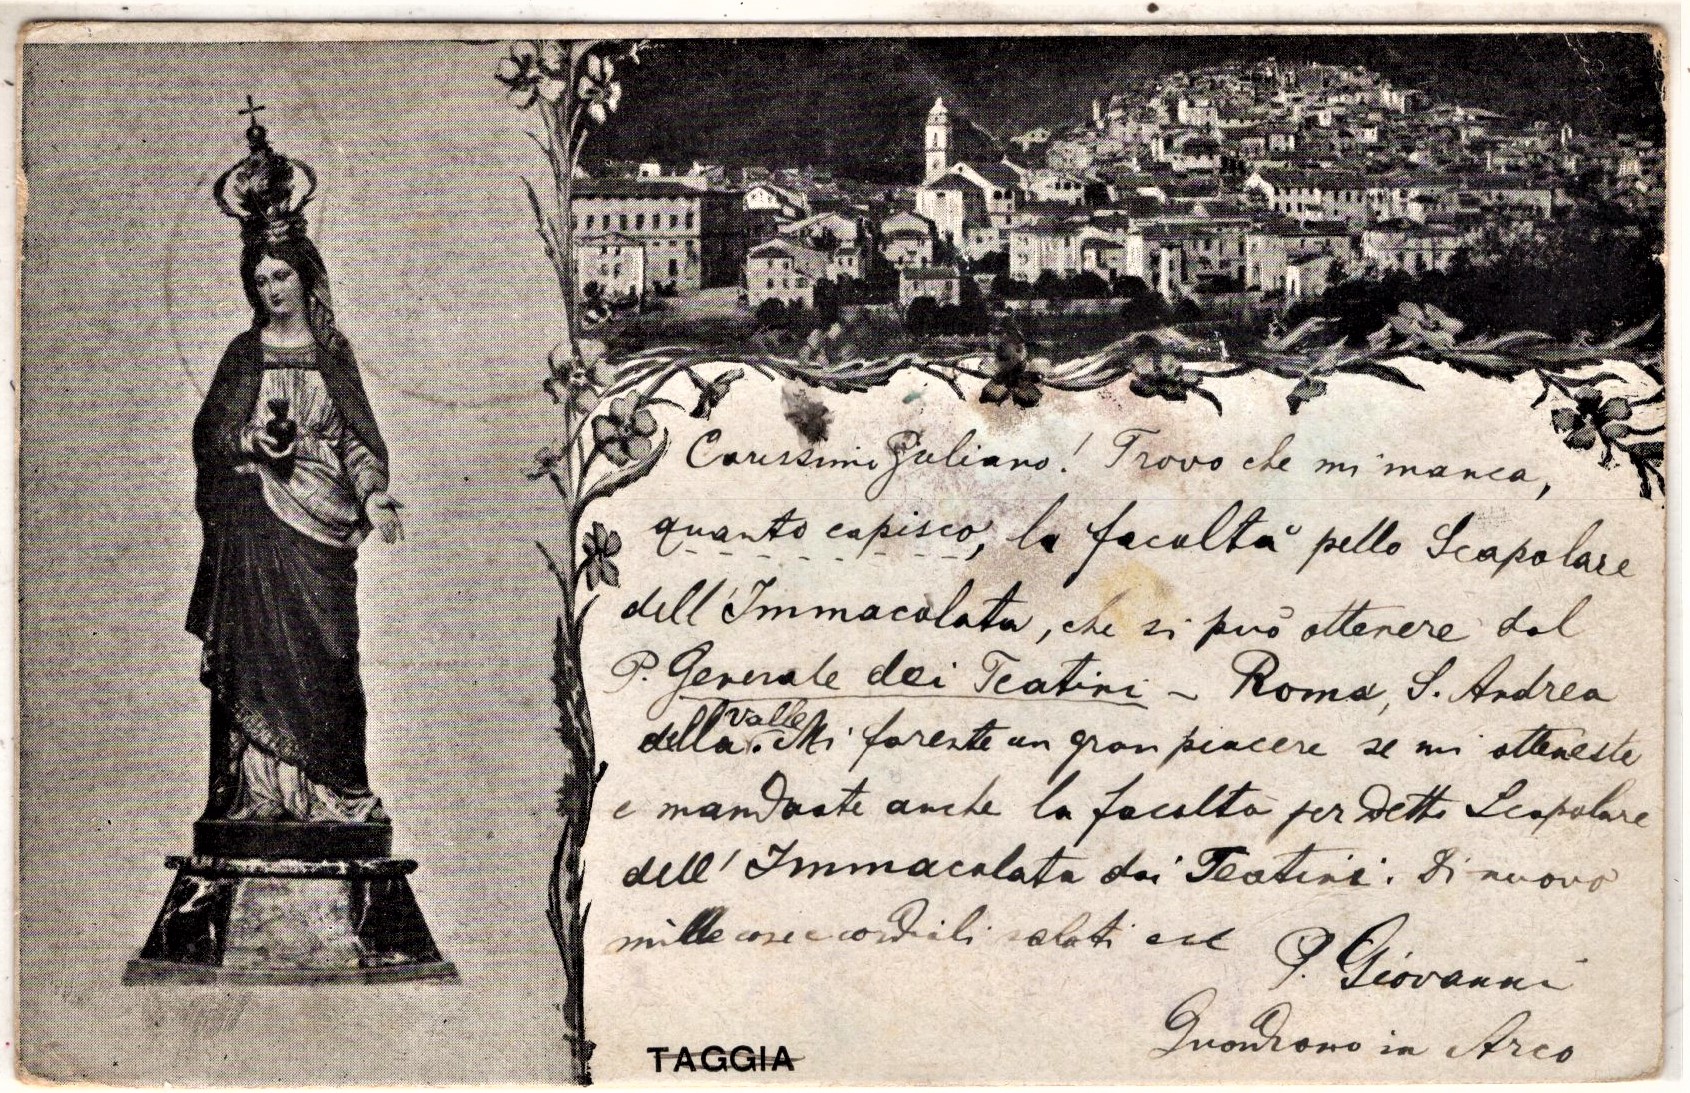 Carissimi Giuliano! Trovo che mi manca,
quanto capisco, la facoltà pello Scapolare
dell'Immacolata, che si può ottenere dal
P. Generale dei Teatini – Roma, S. Andrea
della valle. Mi fareste un gran piacere se mi otteneste
e mandaste anche la facoltà per detto Scapolare
dell'Immacolata dai Teatini. Di nuovo
mille cose e cordiali saluti
P. Giovanni
in Arco
TAGGIA